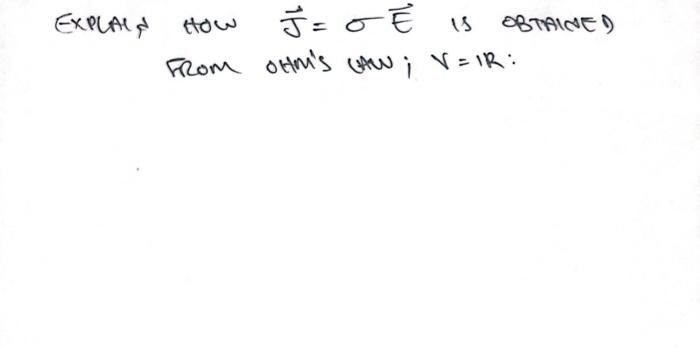 EXPLAIN HOW J⃗ = σ E⃗ IS OBTAINED
FROM OHM'S LAW; V = IR: